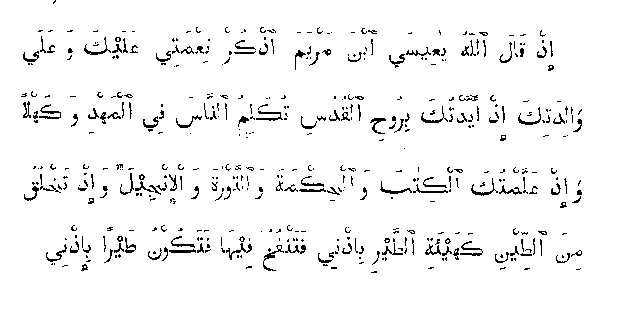 إِذْ قَالَ ٱللّٰهُ يٰعِيسَي ٱبْنَ مَرْيَمَ ٱذْكُرْ نِعْمَتِي عَلَيْكَ وَ عَلَي
وَالِدَتِكَ إِذْ أَيَّدْتُكَ بِرُوحِ ٱلْقُدُسِ تُكَلِّمُ ٱلنَّاسَ فِي ٱلْمَهْدِ وَ كَهْلًا
وَإِذْ عَلَّمْتُكَ ٱلْكِتٰبَ وَ ٱلْحِكْمَةَ وَ ٱلتَّوْرٰةَ وَ ٱلْإِنْجِيْلَ وَإِذْ تَخْلُقُ
مِنَ ٱلطِّيْنِ كَهَيْئَةِ ٱلطَّيْرِ بِاِذْنِي فَتَنْفُخُ فِيْهَا فَتَكُوْنُ طَيْرًا بِإِذْنِي